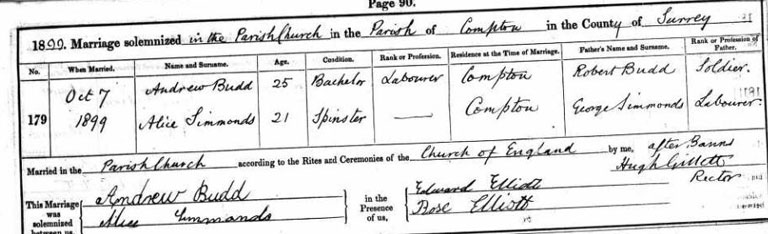 Page 90.
1899. Marriage solemnized in the Parish Church in the Parish of Compton in the County of Surrey
No. When Married. Name and Surname. Age. Condition. Rank or Profession. Residence at the Time of Marriage. Father's Name and Surname. Rank or Profession of Father.
Oct 7 Andrew Budd 25 Bachelor Labourer Compton Robert Budd Soldier.
179 1899 Alice Simmonds 21 Spinster — Compton George Simmonds Labourer.
Married in the Parish Church according to the Rites and Ceremonies of the Church of England by me, after Banns
Hugh Gillett
Rector
This Marriage was solemnized between us,
Andrew Budd
Alice Simmonds
in the Presence of us,
Edward Elliott
Rose Elliott